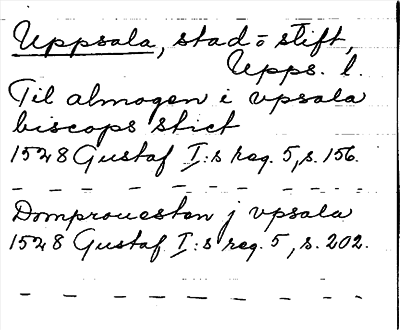 Uppsala, stad o stift,
Upps. l.
Til almogen i vpsala
biscops stict
1528 Gustaf I:s reg. 5, s. 156.
Domprouesten j vpsala
1528 Gustaf I:s reg. 5, s. 202.